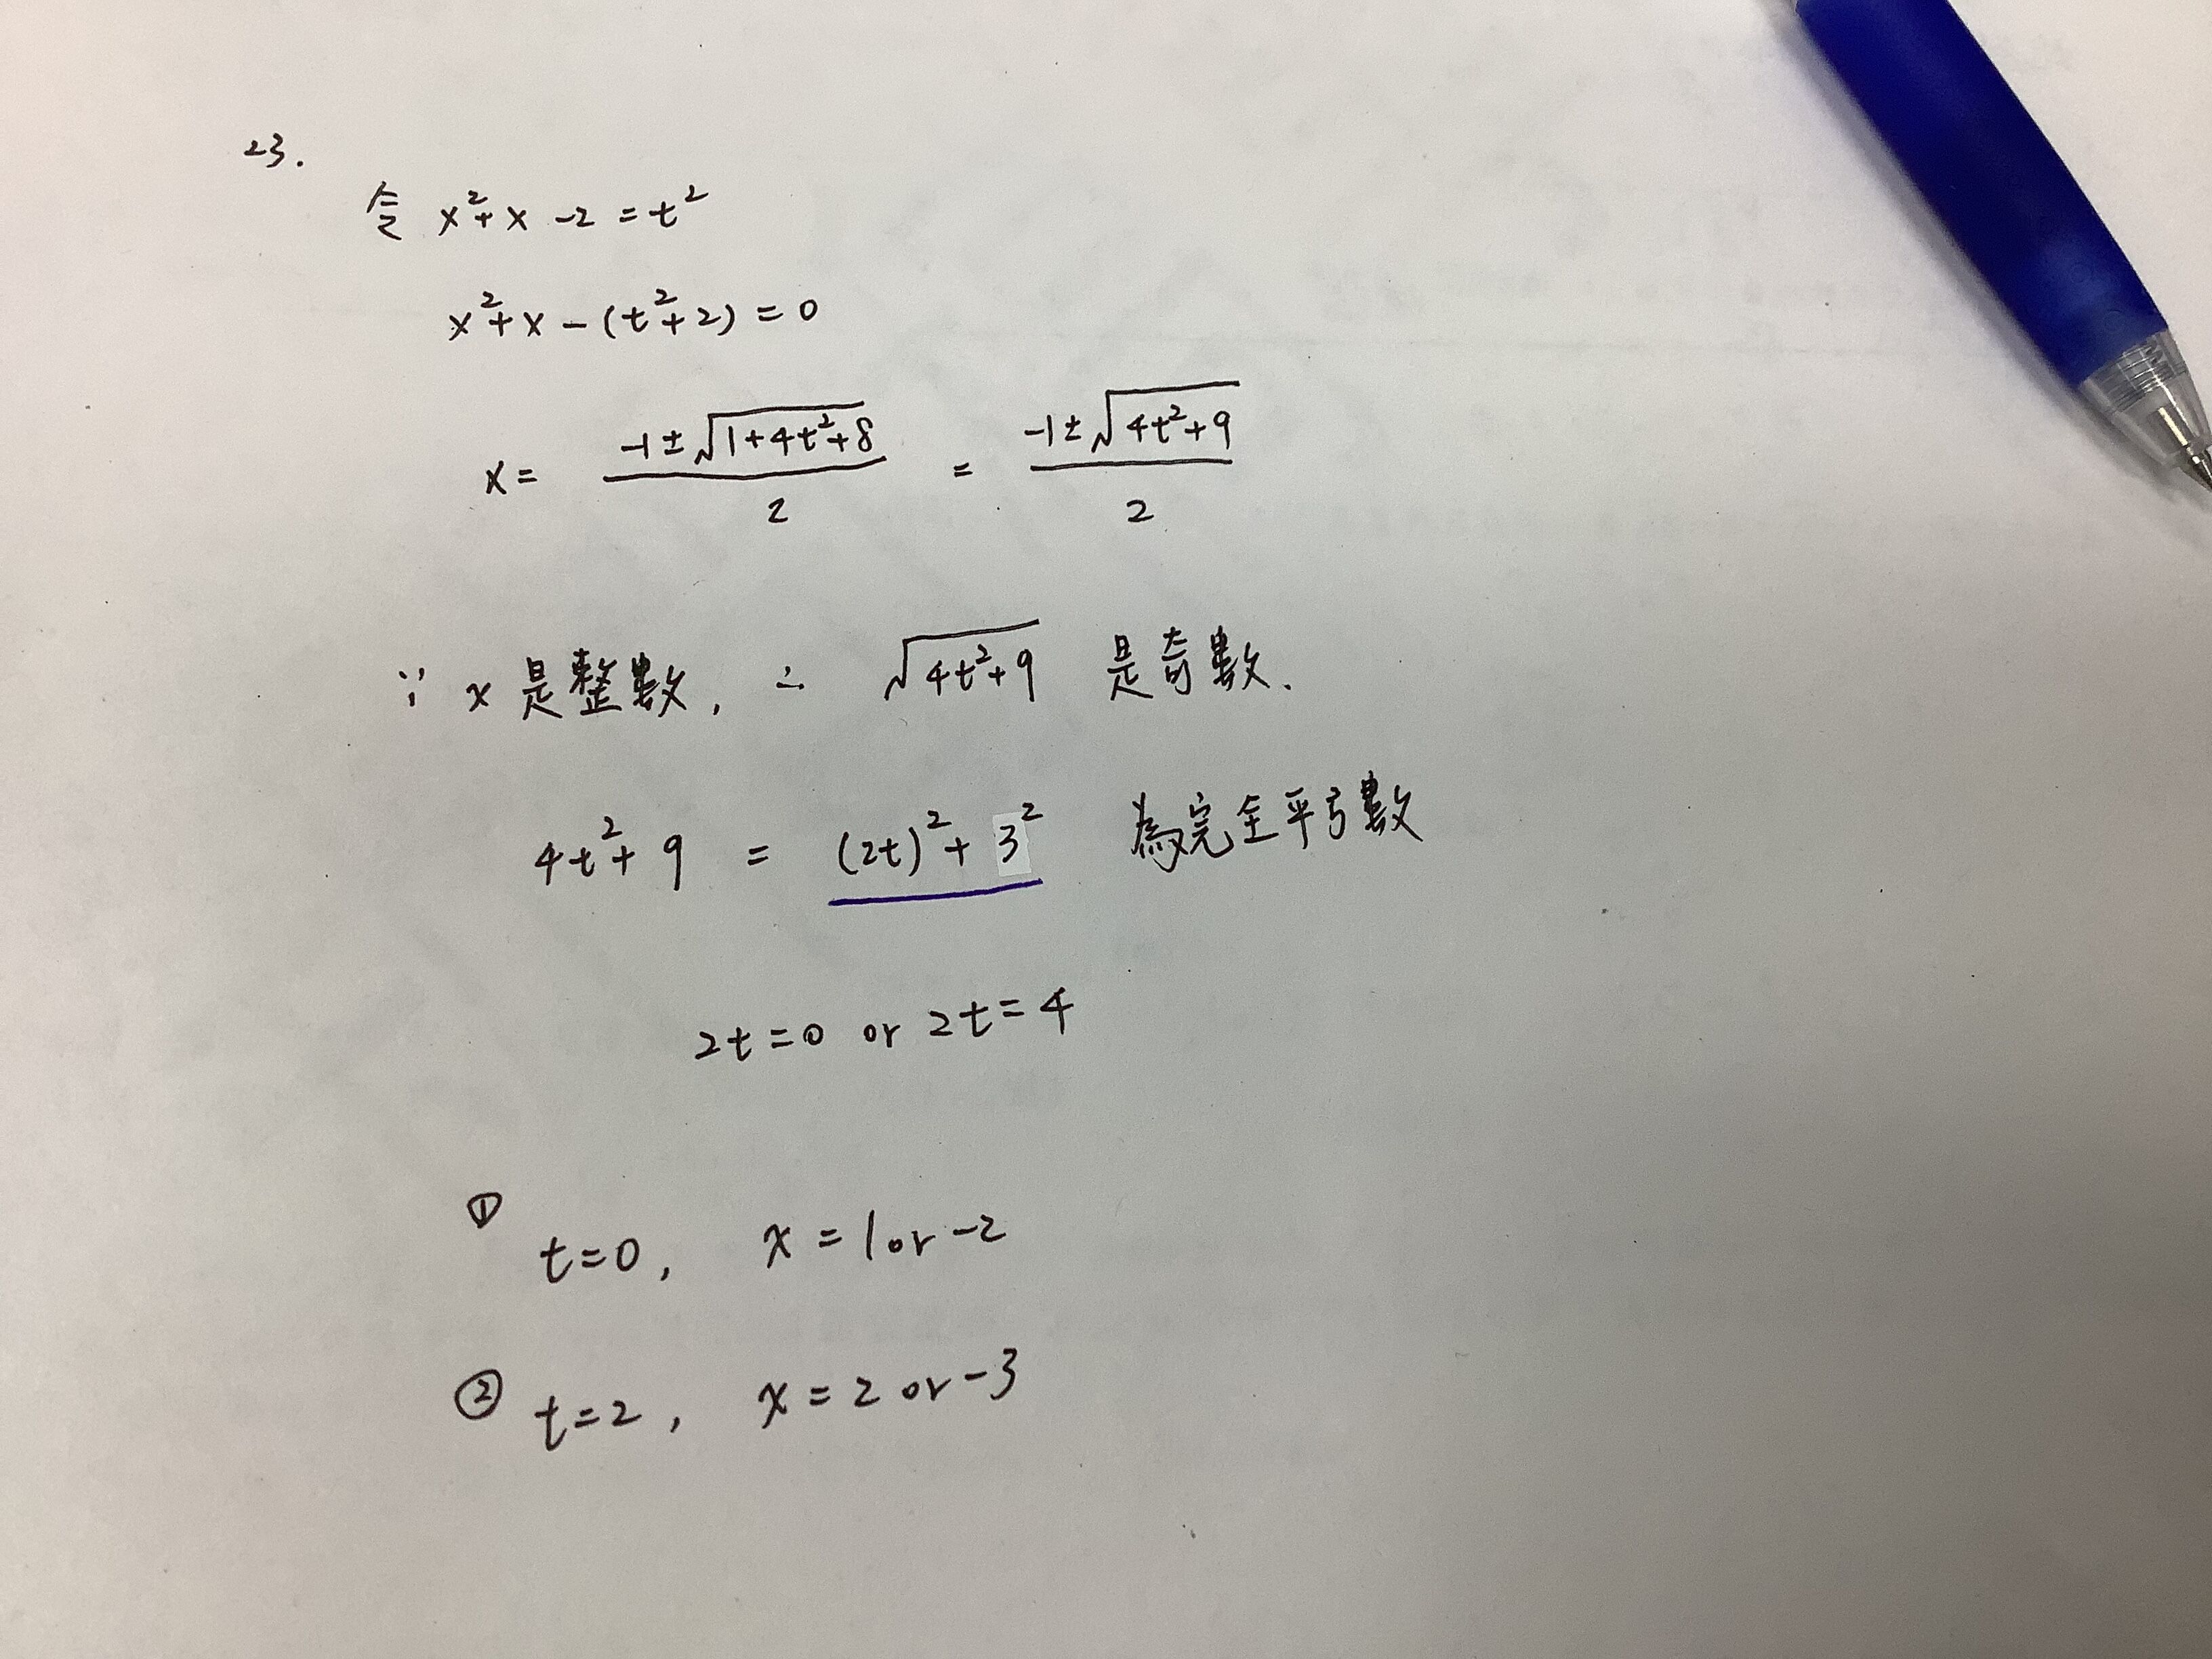 23.
令 x²+x-2=t²
x²+x-(t²+2)=0
x= (-1±√(1+4t²+8))/2 = (-1±√(4t²+9))/2
∵ x是整數, ∴ √(4t²+9) 是奇數.
4t²+9 = (2t)²+3² 為完全平方數
2t=0 or 2t=4
① t=0, x=1 or -2
② t=2, x=2 or -3